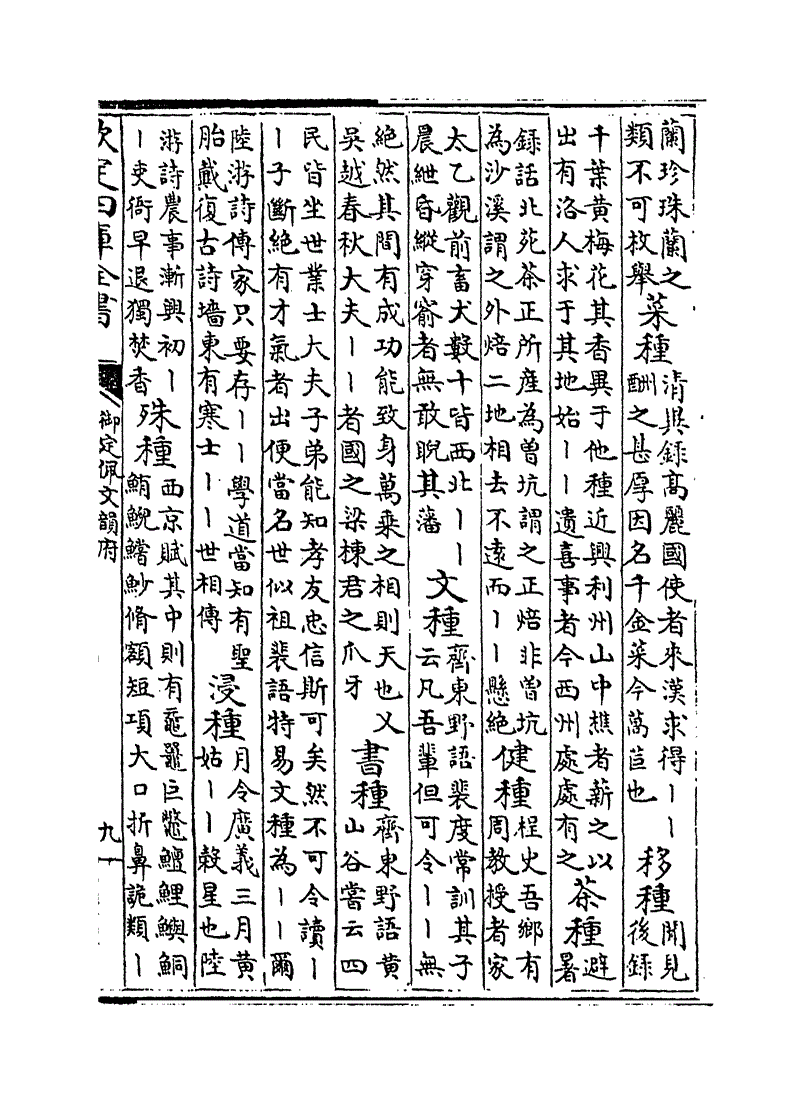 蘭珍珠蘭之
類不可枚舉
菜種
清異錄高麗國使者來漢求得丨丨
酬之甚厚因名千金菜今萵苣也
移種
聞見
後錄
千葉黄梅花其香異于他種近興利州山中樵者薪之以
出有洛人求于其地始丨丨遺喜事者今西州處處有之
茶種
避
暑
錄話北苑茶正所産為曾坑謂之正焙非曾坑
為沙溪謂之外焙二地相去不逺而丨丨懸絶
健種
桯史吾鄉有
周教授者家
太乙觀前畜犬數十皆西北丨丨
晨紲昏縱穿窬者無敢睨其藩
文種
齊東野語裴度常訓其子
云凡吾輩但可令丨丨無
絶然其間有成功能致身萬乘之相則天也又
吳越春秋大夫丨丨者國之梁棟君之爪牙
書種
齊東野語黄
山谷嘗云四
民皆坐世業士大夫子弟能知孝友忠信斯可矣然不可令讀丨
丨子斷絶有才氣者出便當名世似祖裴語特易文種為丨丨爾
陸游詩傳家只要存丨丨學道當知有聖
胎戴復古詩墻東有寒士丨丨世相傳
浸種
月令廣義三月黄
姑丨丨榖星也陸
游詩農事漸興初丨
丨吏衙早退獨焚香
殊種
西京賦其中則有黿鼉巨鼈鱣鯉鱮鮦
鮪鯢鱨魦脩額短項大口折鼻詭類丨
欽定四庫全書
御定佩文韻府
九十